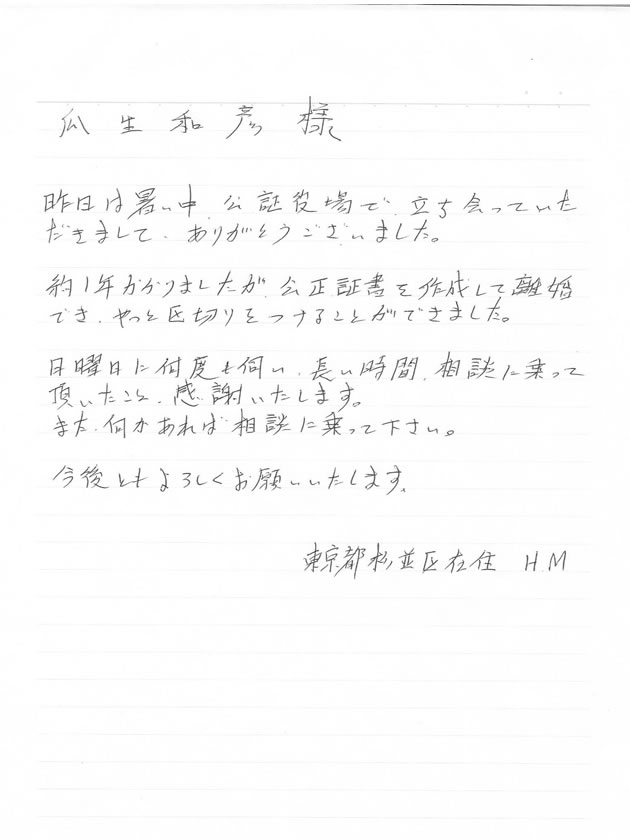 瓜生和彦様
昨日は暑い中、公証役場で、立ち会っていた
だきまして、ありがとうございました。
約1年かかりましたが、公正証書を作成して離婚
でき、やっと区切りをつけることができました。
日曜日に何度も伺い、長い時間、相談に乗って
頂いたこと、感謝いたします。
また、何かあれば相談に乗って下さい。
今後ともよろしくお願いいたします。
東京都杉並区在住 HM